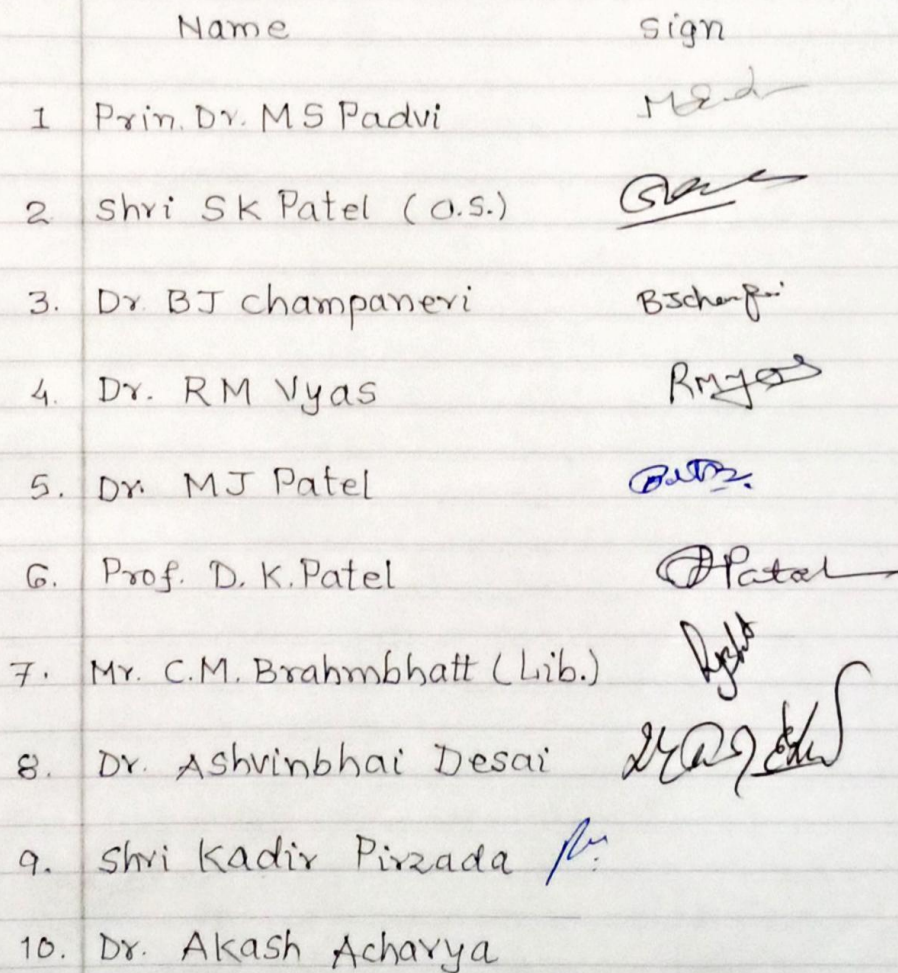 Name Sign
1 Prin. Dr. M S Padvi
2 Shri S K Patel (O.S.)
3. Dr. B J Champaneri
4. Dr. R M Vyas
5. Dr. M J Patel
6. Prof. D. K. Patel Patel
7. Mr. C.M. Brahmbhatt (Lib.)
8. Dr. Ashvinbhai Desai
9. Shri Kadir Pirzada
10. Dr. Akash Acharya